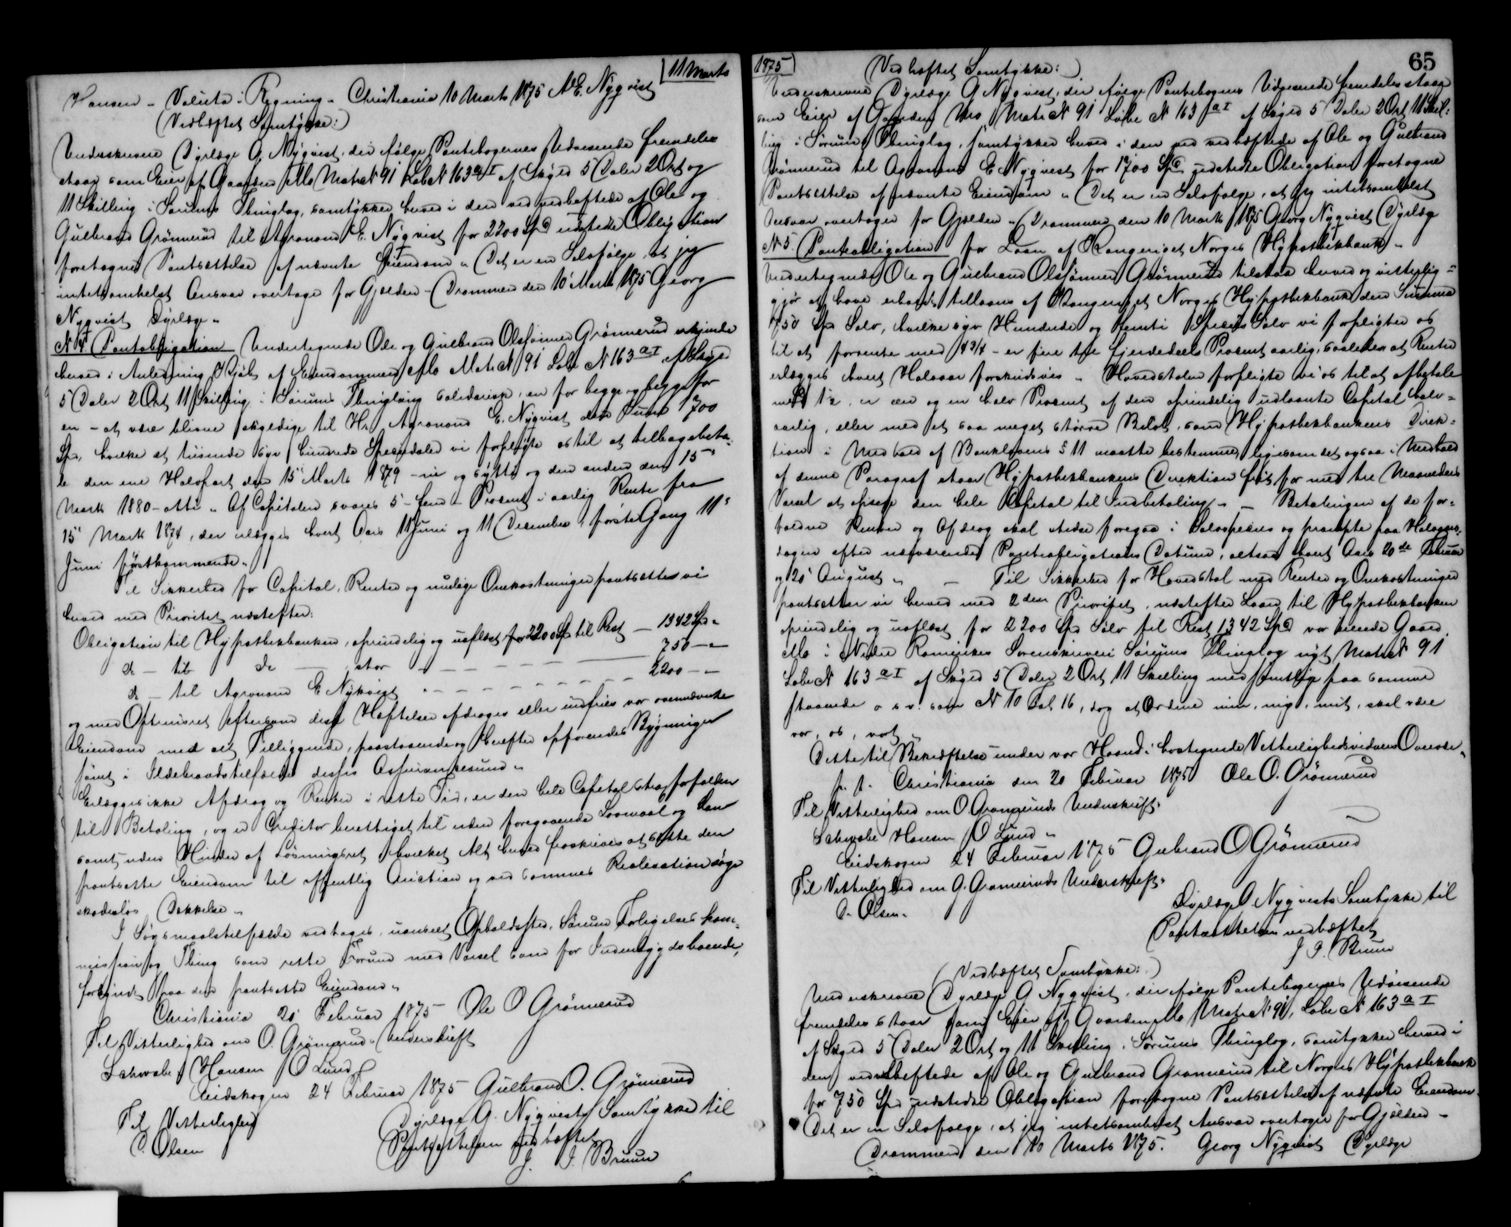 11 Marts
Hansen - Valuta: Regning - Christiania 10 Marts 1875 E. Nyqvist
(Vedhæftet Samtykke:)
Underskrevne Dyrlæge G. Nyqvist, der ifølge Pantebogernes Udvisende fremdeles
staar som Eier af Gaarden Mo Matr N 91 Løbe N 163 a I af Skyld 5 Daler 2 Ort og
11 Skilling i Sørums Thinglag, samtykker herved i den ved vedhæftede af Ole og
Gulbrand Grønnerud til Agronom E. Nyqvist for 2200 Spd udstedte Obligation
foretagne Pantsættelse af nævnte Eiendom. Det er en Selvfølge, at jeg
intetsomhelst Ansvar overtager for Gjælden. Drammen den 10 Marts 1875 Georg
Nyqvist Dyrlæge.
N 4 Pantobligation Undertegnede Ole og Gulbrand Olsønner Grønnerud erkjende
herved i Anledning Kjøb af Eiendommen Mo Matr N 91 Løbe N 163 a I af Skyld
5 Daler 2 Ort 11 Skilling i Sørums Thinglaug solidarisk, en for begge og begge for
en - at være blevne skyldige til Hr. Agronom E. Nyqvist den Sum 1700
Spd, hvilke et tusende syv hundrede Speciedaler vi forpligte os til at tilbagebeta-
le den ene Halvpart den 15 Marts 1879 - ni og sytti og den anden den 15
Marts 1880 - otti. Af Capitalen svares 5 - fem - Procent i aarlig Rente fra
15 Marts 1874, der erlægges hvert Aars 11 Juni og 11 December, første Gang 11
Juni førstkommende.
Til Sikkerhed for Capital, Renter og mulige Omkostninger pantsætter vi
herved med Prioritet næstefter:
Obligation til Hypothekbanken, oprindelig og uaflæst for 2200 Spd til Rest - 1342 Spd -
do - til do - stor - 750 - -
do - til Agronom E Nyqvist - 2200 - -
og med Oprykningsret eftersom disse Heftelser afdrages eller indfries vor ovennævnte
Eiendom med alt Tilliggende, paastaaende og herefter opførendes Bygninger
samt i Ildebrandstilfælde disses Assurancesum.
Erlægges ikke Afdrag og Renter i rette Tid, er den hele Capital strax forfalden
til Betaling, og er Creditor berettiget til uden foregaaende Lovmaal og Dom
samt uden Hinder af Løsningsret, hvilket Alt herved fraskrives at sætte den
pantsatte Eiendom til offentlig Auction og ved sammes Realisation søge
skadesløs Dækkelse.
I Søgsmaalstilfælde vedtages, uanseet Opholdssted, Sørums Forligelseskom-
mission og Thing som rette Forum med Varsel som for Indenbygdsboende,
forkyndt paa den pantsatte Eiendom.
Christiania 20 Februar 1875 Ole O Grønnerud
Til Vitterlighed om O. Grønneruds Underskrift
Schwabe Hansen O Lund
Eidskogen 24 Februar 1875 Gulbrand O. Grønnerud
Til Vitterlighed Dyrlæge G. Nyqvists Samtykke til
P. Olsen Pantsættelsen vedhæftet
J. P. Bruun
1875 65
(Vedhæftet Samtykke:)
Underskrevne Dyrlæge G Nyqvist, der ifølge Pantebogens Udvisende fremdeles staar
som Eier af Gaarden Mo Matr N 91 Løbe N 163 a I af Skyld 5 Daler 2 Ort 11 Skil-
ling i Sørums Thinglag, samtykker herved i den ved vedhæftede af Ole og Gulbrand
Grønnerud til Agronom E. Nyqvist for 1700 Spd udstedte Obligation foretagne
Pantsættelse af nævnte Eiendom. Det er en Selvfølge, at jeg intetsomhelst
Ansvar overtager for Gjælden. Drammen den 10 Marts 1875 Georg Nyqvist Dyrlæge
N 5 Pantobligation for Laan af Kongeriget Norges Hypothekbank.
Undertegnede Ole og Gulbrand Olsønner Grønnerud tilstaar herved og vitterlig-
gjør at have erholdt tillaans af Kongeriget Norges Hypothekbank den Summa
750 Spd Sølv, hvilke syv Hundrede og femti Species Sølv vi forpligter os
til at forrente med 4 3/4 - er fire tre fjerdedeels Procent aarlig, saaledes at Renten
erlægges hvert Halvaar forskudsvis. Hovedstolen forpligte vi os til at afbetale
med 1/2 er een og en halv Procent af den oprindelig udlaante Capital halv-
aarlig, eller med et saa meget større Beløb, som Hypothekbankens Direk-
tion i Medhold af Banklovens § 11 maatte bestemme, ligesom det ogsaa i Medhold
af denne Paragraf staar Hypothekbankens Direktion frit for med tre Maaneders
Varsel at opsige den hele Capital til Indbetaling. - Betalingen af de for-
faldne Renter og Afdrag skal stedse foregaa i Sølvspecies og præcist paa Halvaars-
dagen efter nærværende Pantobligations Datum, altsaa hvert Aars 20de Februar
og 20 August. - Til Sikkerhed for Hovedstol med Renter og Omkostninger
pantsætter vi herved med 2den Prioritet, næstefter Laan til Hypothekbanken
oprindelig og uaflæst for 2200 Spd Sølv til Rest 1342 Spd vor eiende Gaard
Mo i Nedre Romerikes Sorenskriveri Sørums Thinglag nyt Matr N 91
Løbe N 163 a I af Skyld 5 Daler 2 Ort 11 Skilling med samtlige paa samme
staaende o. s. v. som N 10 Fol 16, dog at Ordene min, mig, mit, skal være
vor, os, vort.
Dette til Bekræftelse under vor Haand i hostegnede Vitterlighedsvidners Overvær.
p. t. Christiania den 20 Februar 1875 Ole O. Grønnerud
Til Vitterlighed om O Grønneruds Underskrift:
Schwabe Hansen O Lund
Eidskogen 24 Februar 1875 Gulbrand O Grønnerud
Til Vitterlighed om G. Grønneruds Underskrift:
P. Olsen. Dyrlæge G Nyqvists Samtykke til
Pantsættelsen vedhæftet
J. P. Bruun
(Vedhæftet Samtykke:)
Underskrevne Dyrlæge G Nyqvist, der ifølge Pantebogernes Udvisende
fremdeles staar som Eier af Gaarden Mo Matr N 91, Løbe N 163 a I
af Skyld 5 Daler 2 Ort og 11 Skilling i Sørums Thinglag, samtykker herved i
den ved vedhæftede af Ole og Gulbrand Grønnerud til Norges Hypothekbank
for 750 Spd udstedte Obligation foretagne Pantsættelse af nævnte Eiendom.
Det er en Selvfølge, at jeg intetsomhelst Ansvar overtager for Gjælden -
Drammen den 10 Marts 1875. Georg Nyqvist Dyrlæge